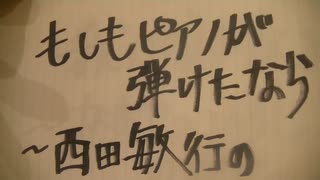 もしもピアノが
弾けたなら
～西田敏行の